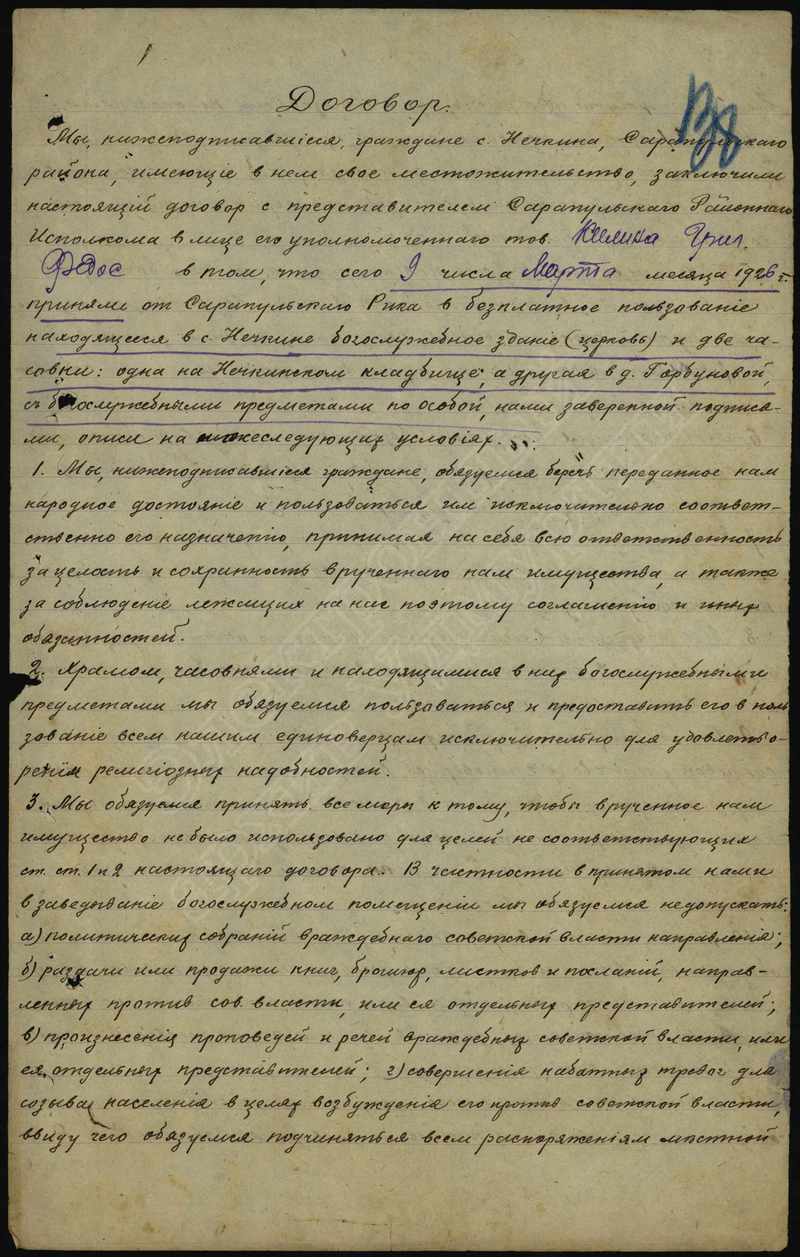 1
138
Договор.
Мы, нижеподписавшіеся, граждане с. Нечкина, Сарапульскаго
района, имеющіе в нем свое местожительство, заключили
настоящій договор с представителем Сарапульскаго Районнаго
Исполкома в лице его уполномоченнаго тов. Килина Григ.
Федос в том, что сего 9 числа Марта месяца 1926 г.
приняли от Сарапульскаго Рика в безплатное пользованіе
находящееся в с. Нечкине богослужебное зданіе (церковь) и две ча-
совни: одна на Нечкинском кладбище, а другая в д. Горбуновой,
съ богослужебными предметами по особой, нами заверенной подпися-
ми, описи на нижеследующих условіях.
1. Мы, нижеподписавшіеся граждане, обязуемся беречь переданное нам
народное достояніе и пользоваться им исключительно соответ-
ственно его назначенію, принимая на себя всю ответственность
за целость и сохранность врученнаго нам имущества, а также
за соблюденіе лежащих на нас поэтому соглашению и иных
обязанностей.
2. Храмом, часовнями и находящимися в них богослужебными
предметами мы обязуемся пользоваться и предоставить его в поль
зованіе всем нашим единоверцам исключительно для удовлетво-
реніи религіозных надобностей.
3. Мы обязуемся принять все меры к тому, чтобы врученное нам
имущество не было использовано для целей не соответствующих
ст. ст. 1 и 2 настоящаго договора. В частности в принятом нами
в заведываніе богослужебном помещеніи мы обязуемся недопускать:
а) политических собраній враждебнаго советской власти направленія;
б) раздачи или продажи книг, брошюр, листков и посланій, направ-
ленных против сов. власти, или ея отдельных представителей;
в) произнесенія проповедей и речей враждебных советской власти, или
ея отдельных представителей; г) совершенія набатных тревог для
созыва населенія в целях возбужденія его против советской власти,
ввиду чего обязуемся подчиняться всем распоряженіям местной